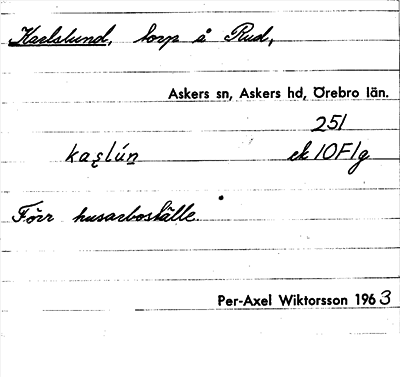 Karlslund, torp å Rud,
Askers sn, Askers hd, Örebro län.
251
ka̢slún̠ ek 10F1g
Förr husarboställe.
Per-Axel Wiktorsson 1963